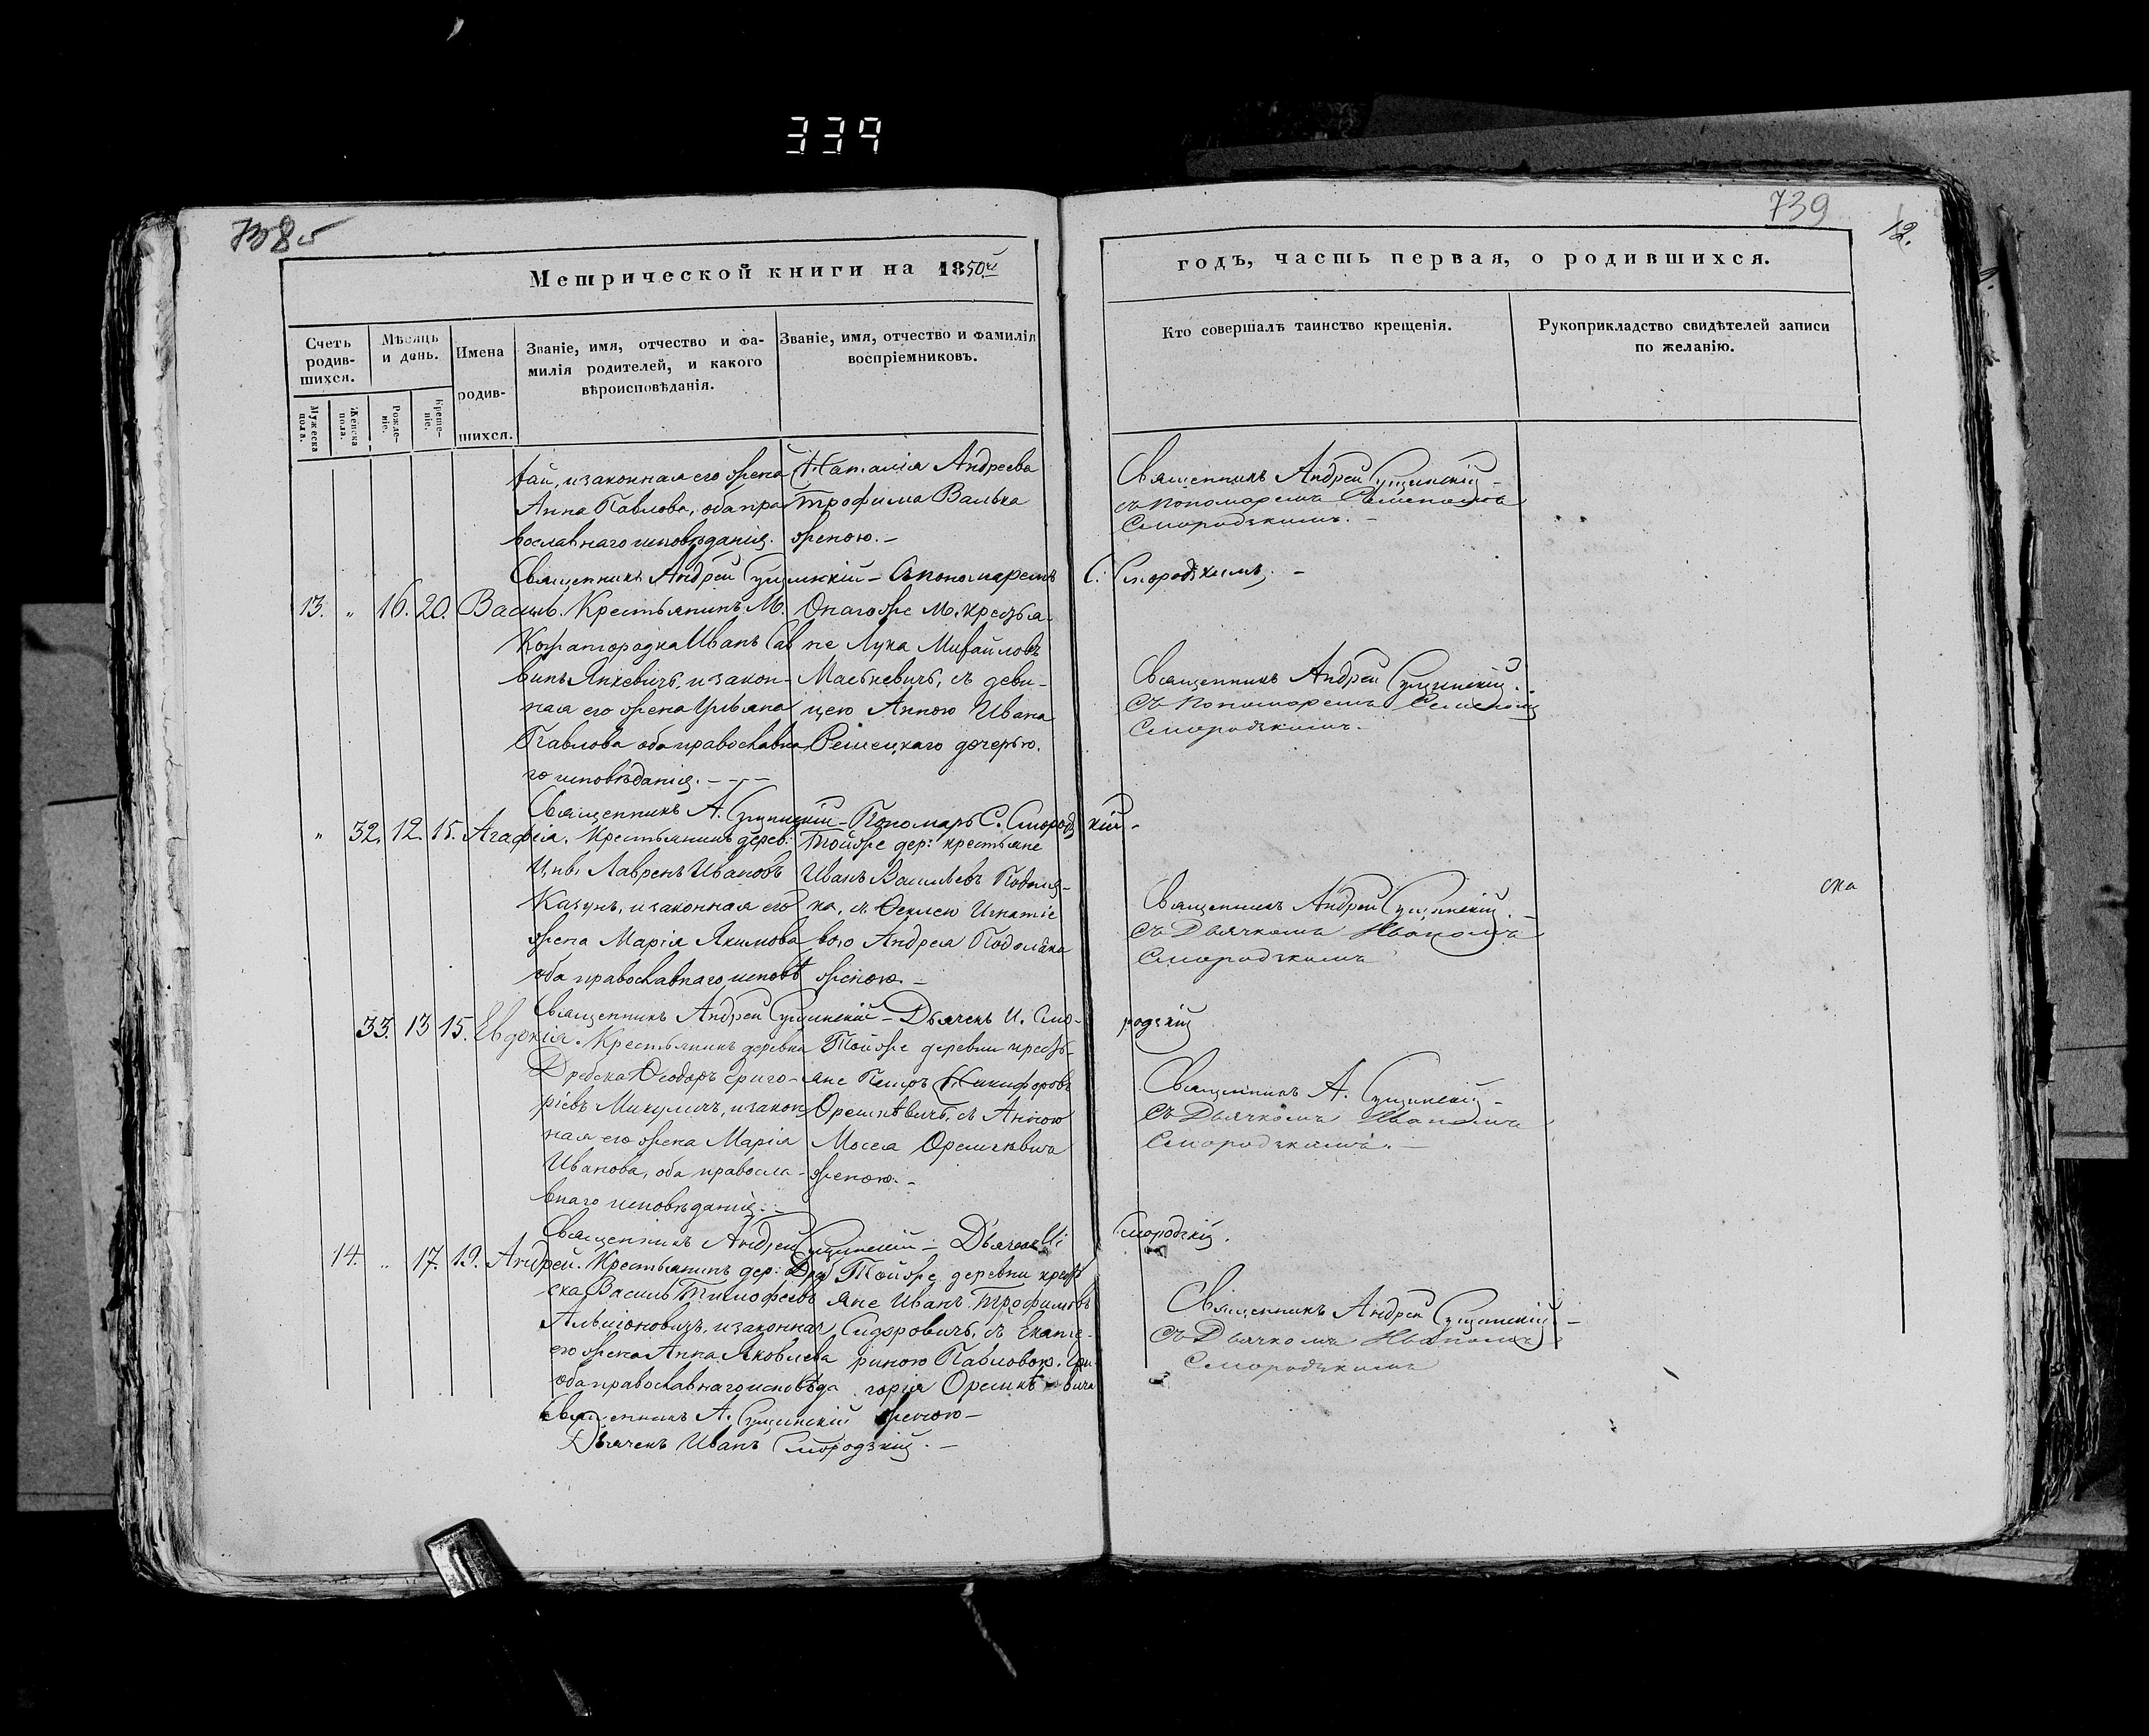 339
738об
739
12.
Метрической книги на 1850й
годъ, часть первая, о родившихся.
Счетъ родив-шихся.
Мѣсяцъ и день.
Имена родив-шихся.
Званіе, имя, отчество и фа-
милія родителей, и какого
вѣроисповѣданія.
Званіе, имя, отчество и фамилія
воспріемниковъ.
Кто совершалъ таинство крещенія.
Рукоприкладство свидѣтелей записи
по желанію.
Мужеска пола.
Женска пола.
Рожде-ніе.
Креще-ніе.
хай, и законная его жена
Анна Павлова, оба пра
вославнаго исповѣданія.
Наталія Андреева
Трофима Валька
женою.-
Священникъ Андрей Сущинскій-
съ пономаремъ Семеномъ
Смородзкимъ.-
Священникъ Андрей Сущинскій - Съ пономаремъ С. Смородзкимъ. -
13. „ 16. 20. Василь. Крестьянинъ М.
Кожангородка Иванъ Сав
винъ Янкевичъ, и закон-
ная его жена Ульяна
Павлова оба православна
го исповѣданія.---
Онагоже М. крестья-
не Лука Михайловъ
Маськевичъ, съ деви-
цею Анною Ивана
Решецкаго дочерью.
Священникъ Андрей Сущинскій.
Съ пономаремъ Семеномъ
Смородзкимъ.
Священникъ А. Сущинскій - Пономарь С. Смородзкій-
„ 32. 12. 15. Агафія. Крестьянинъ дерев:
Цны Лавренъ Ивановъ
Казунъ, и законная его
жена Марія Якимова
оба православнаго исповѣ
Тойже дер: крестьяне
Иванъ Васильевъ Подоля-
ка, съ Феклею Игнатіе
вою Андрея Подоляка
женою.-
Священникъ Андрей Сущинскій.-
Съ Дьячкомъ Иваномъ
Смородзкимъ
ска
Священникъ Андрей Сущинскій - Дьячекъ И. Смо-
родзкій
33. 13 15. Евдокія. Крестьянинъ деревни
Дребска Ѳеодоръ Григо-
ріевъ Микуличъ, и закон
ная его жена Марія
Иванова, оба правосла-
внаго исповѣданія.-
Тойже деревни кресть-
яне Петръ Никифоровъ
Орешкѣвичъ, съ Анною
Мосея Орешкѣвича
женою.-
Священникъ А. Сущинскій-
Съ Дьячкомъ Иваномъ
Смородзкимъ.-
Священникъ Андрей Сущинскій - Дьячекъ И:
Смородзкій.
14. „ 17. 19. Андрей. Крестьянинъ дер: Дреб
ска Василь Тимофеевъ
Альхіоновичъ, и законная
его жена Анна Яковлева
оба православнаго исповѣда
Тойже деревни кресть
яне Иванъ Трофимовъ
Сидоровичъ, съ Екате-
риною Павловою. Гри-
горія Орешкѣвича
женою-
Священникъ Андрей Сущинскій-
Съ Дьячкомъ Иваномъ
Смородзкимъ
Священникъ А. Сущинскій
Дьячекъ Иванъ Смородзкій.-